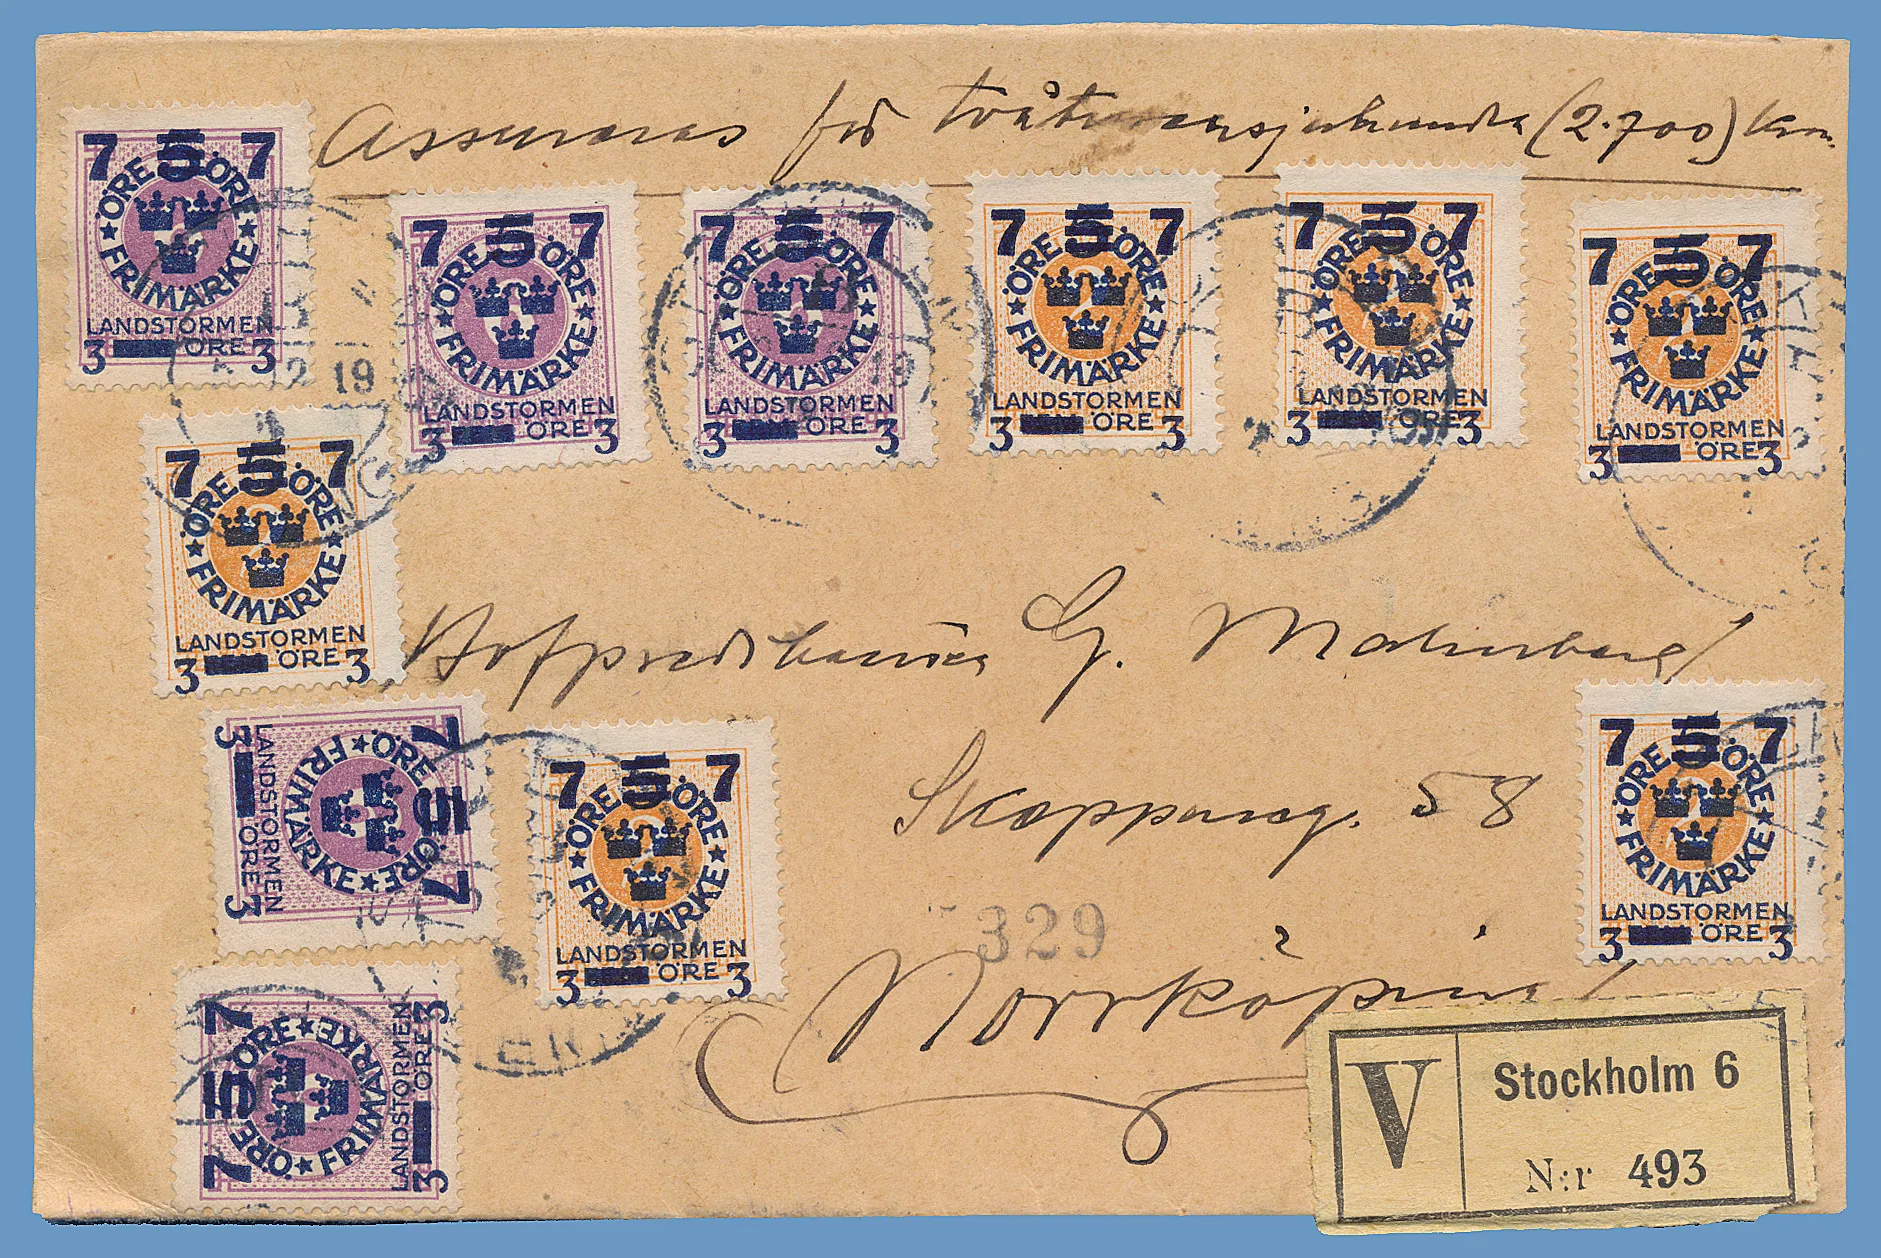 Assureras för tvåtusensjuhundra (2.700) kr.
7 5 7
ÖRE ÖRE
FRIMÄRKE
LANDSTORMEN
3 ÖRE 3
12 19
7 5 7
ÖRE ÖRE
FRIMÄRKE
LANDSTORMEN
3 ÖRE 3
7 5 7
ÖRE ÖRE
FRIMÄRKE
LANDSTORMEN
3 ÖRE 3
19
7 5 7
ÖRE ÖRE
FRIMÄRKE
LANDSTORMEN
3 ÖRE 3
7 5 7
ÖRE ÖRE
FRIMÄRKE
LANDSTORMEN
3 ÖRE 3
7 5 7
ÖRE ÖRE
FRIMÄRKE
LANDSTORMEN
3 ÖRE 3
7 5 7
ÖRE ÖRE
FRIMÄRKE
LANDSTORMEN
3 ÖRE 3
G. Malmberg
7 5 7
ÖRE ÖRE
FRIMÄRKE
LANDSTORMEN
3 ÖRE 3
7 5 7
ÖRE ÖRE
FRIMÄRKE
LANDSTORMEN
3 ÖRE 3
Skepparg. 58
7 5 7
ÖRE ÖRE
FRIMÄRKE
LANDSTORMEN
3 ÖRE 3
329
Norrköping
7 5 7
ÖRE ÖRE
FRIMÄRKE
LANDSTORMEN
3 ÖRE 3
V Stockholm 6
N:r 493